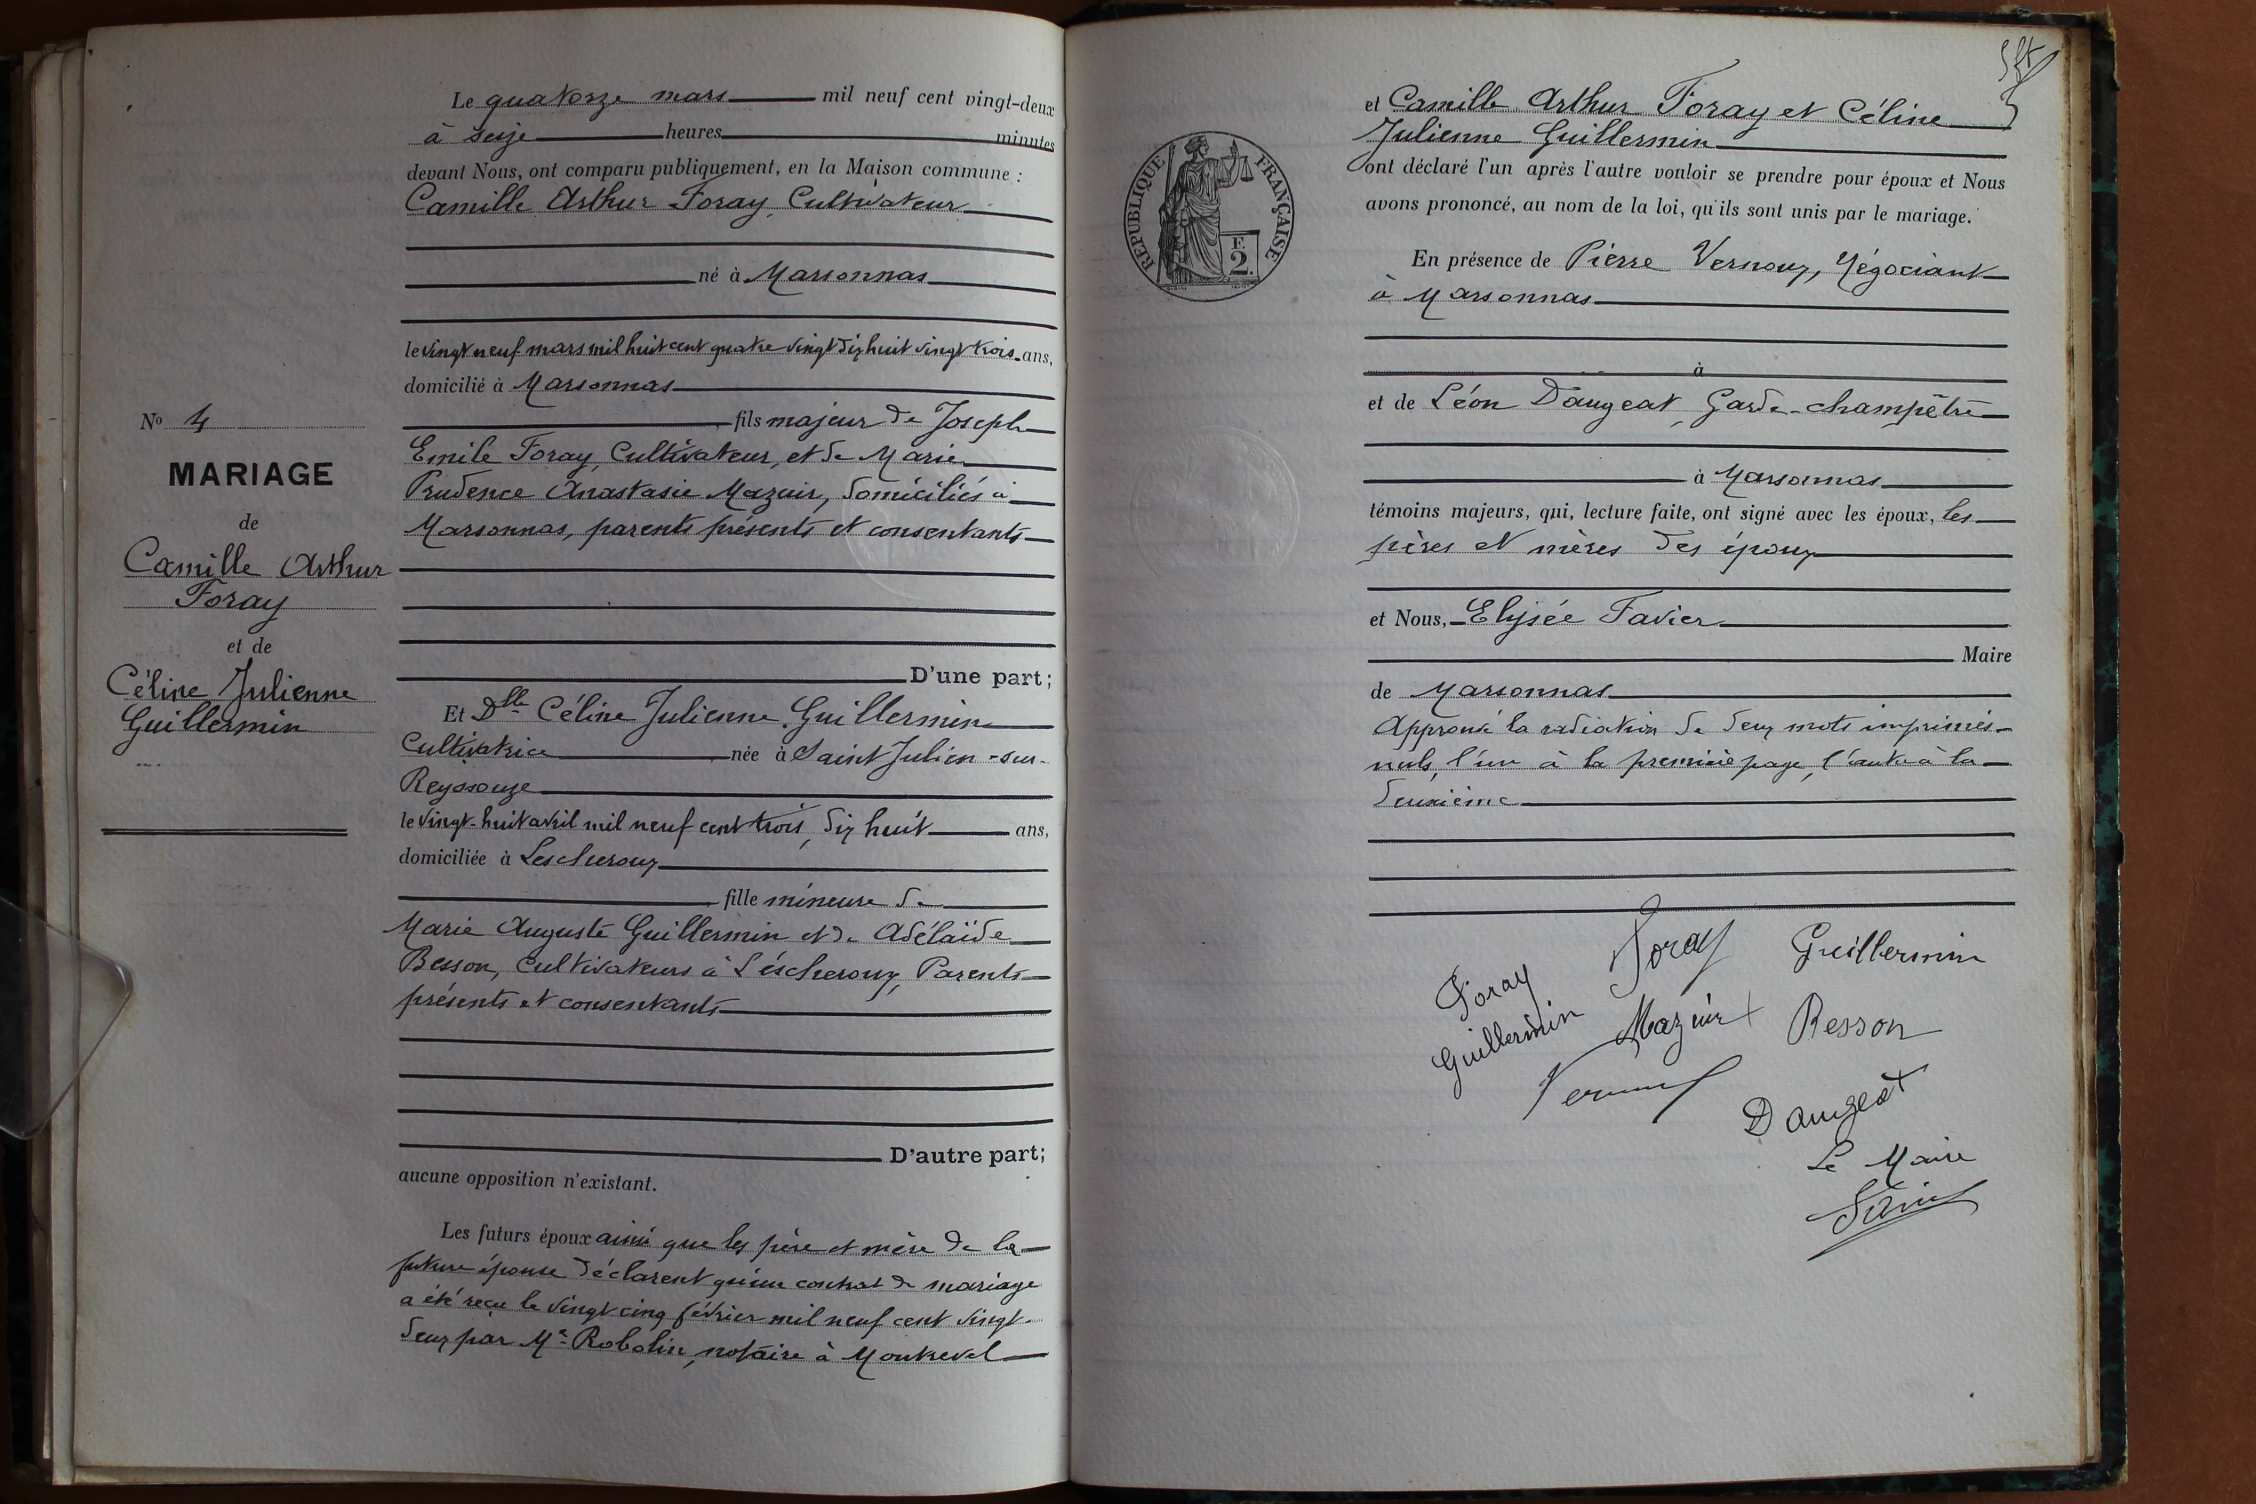 Le quatorze mars mil neuf cent vingt-deux
à seize heures minutes
devant Nous, ont comparu publiquement, en la Maison commune :
Camille Arthur Foray, Cultivateur
né à Marsonnas
le vingt neuf mars mil huit cent quatre vingt dix huit vingt trois ans,
domicilié à Marsonnas
fils majeur de Joseph
Emile Foray, Cultivateur, et de Marie
Prudence Anastasie Mazuir, domiciliés à
Marsonnas, parents présents et consentants
D'une part;
Et Dlle Céline Julienne Guillermin
Cultivatrice née à Saint Julien-sur-
Reyssouze
le vingt-huit avril mil neuf cent trois, dix huit ans,
domiciliée à Lescheroux
fille mineure de
Marie Auguste Guillermin et de Adélaïde
Besson, Cultivateurs à Lescheroux, Parents
présents et consentants
D'autre part;
aucune opposition n'existant.
Les futurs époux ainsi que les père et mère de la
future épouse déclarent qu'un contrat de mariage
a été reçu le vingt cinq février mil neuf cent vingt-
deux par Me Robolin, notaire à Montrevel
No 4
MARIAGE
de
Camille Arthur
Foray
et de
Céline Julienne
Guillermin
et Camille Arthur Foray et Céline
Julienne Guillermin
ont déclaré l'un après l'autre vouloir se prendre pour époux et Nous
avons prononcé, au nom de la loi, qu'ils sont unis par le mariage.
RÉPUBLIQUE FRANÇAISE
F.
2.
En présence de Pierre Vernoux, Négociant
à Marsonnas
à
et de Léon Daugeat, Garde-champêtre
à Marsonnas
témoins majeurs, qui, lecture faite, ont signé avec les époux, les
pères et mères des époux
et Nous, Elysée Favier
Maire
de Marsonnas
Approuvé la radiation de deux mots imprimés
nuls, l'un à la première page, l'autre à la
deuxième
Foray Guillermin
Foray
Guillermin Mazuir Besson
Daugeat
Le Maire